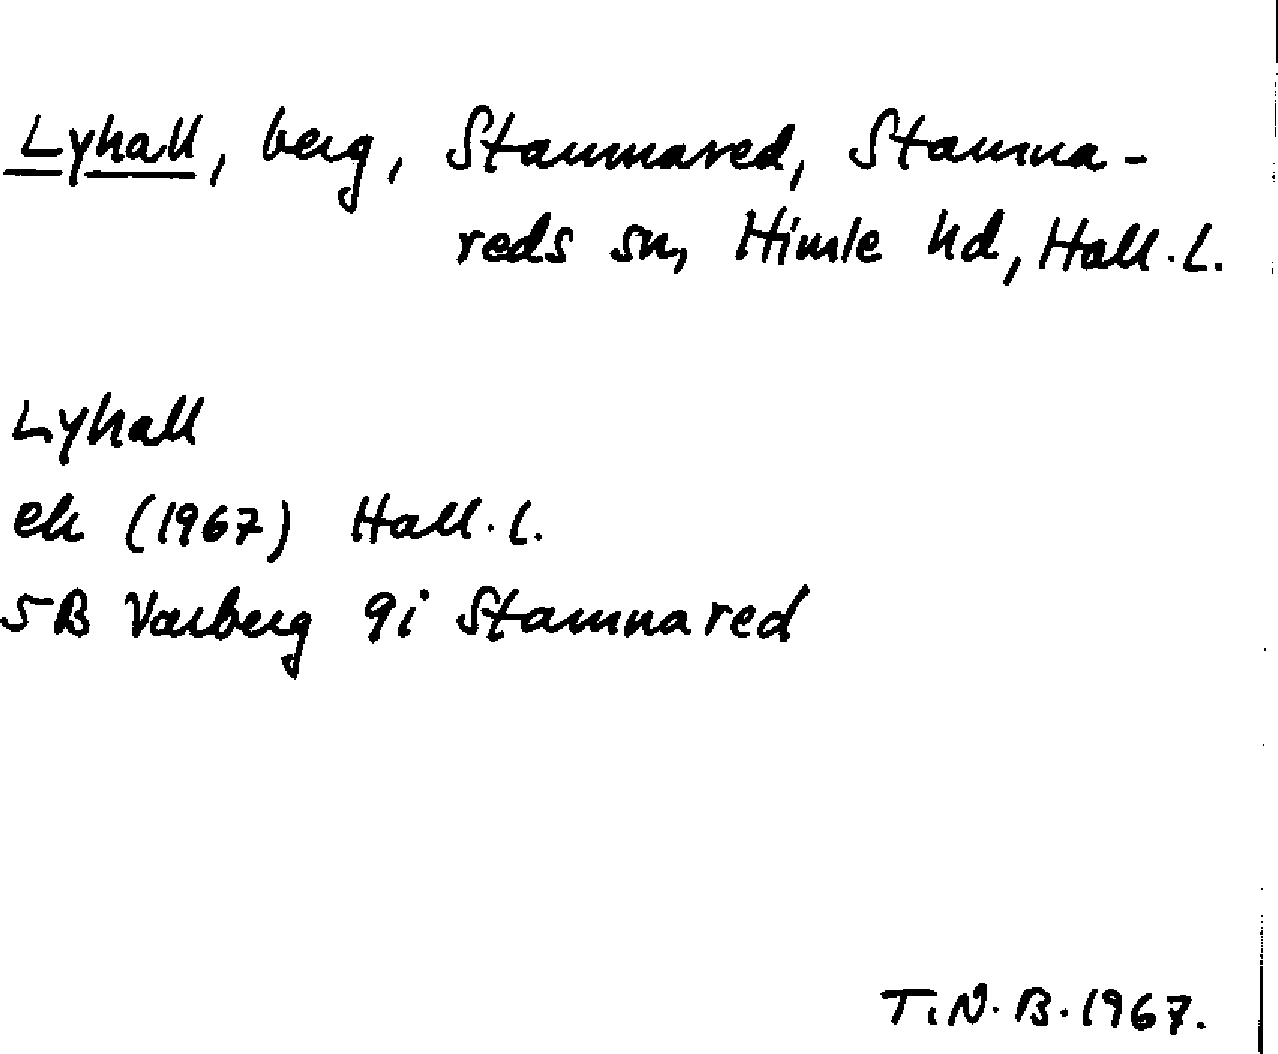 Lyhall, berg, Stamnared, Stamna-
reds sn, Himle hd, Hall. L.
Lyhall
ek (1967) Hall. L.
5B Varberg 9i Stamnared
T.N.B. 1967.